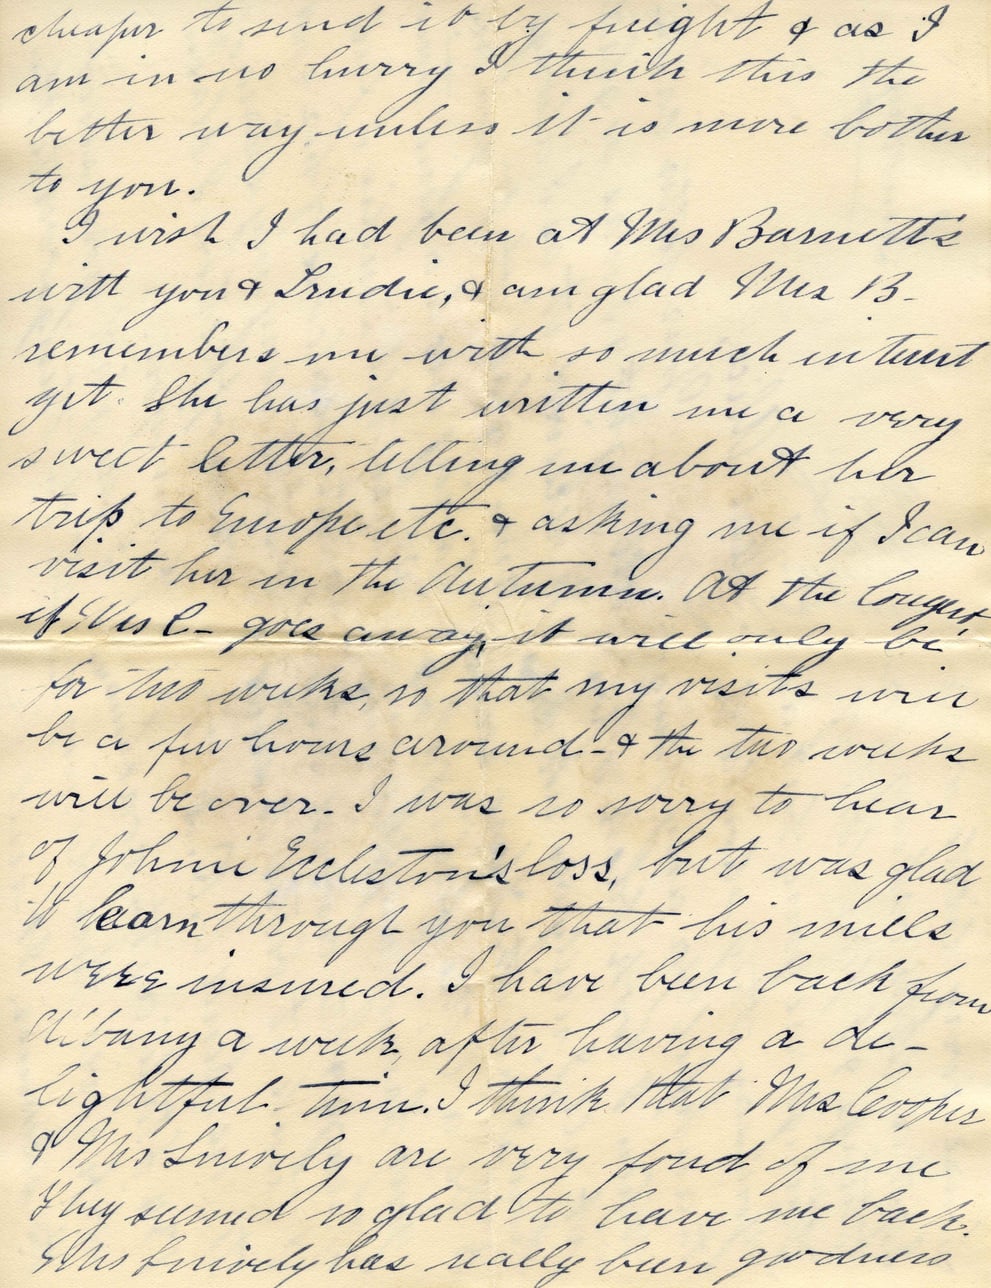 cheaper to send it by freight & as I
am in no hurry I think this the
better way unless it is more bother
to you.
I wish I had been at Mrs Barnett's
with you & Trudie, & am glad Mrs B-
remembers me with so much interest
yet. She has just written me a very
sweet letter, telling me about her
trip to Europe etc. & asking me if I can
visit her in the Autumn. At the longest
if Mrs C- goes away, it will only be
for two weeks, so that my visits will
be a few hours around - & the two weeks
will be over. I was so sorry to hear
of Johnie Eccleston's loss, but was glad
to learn through you that his mills
were insured. I have been back from
Albany a week, after having a de-
lightful time. I think that Mrs Cooper
& Mrs Snively are very fond of me
They seemed so glad to have me back.
Mrs Snively has really been goodness